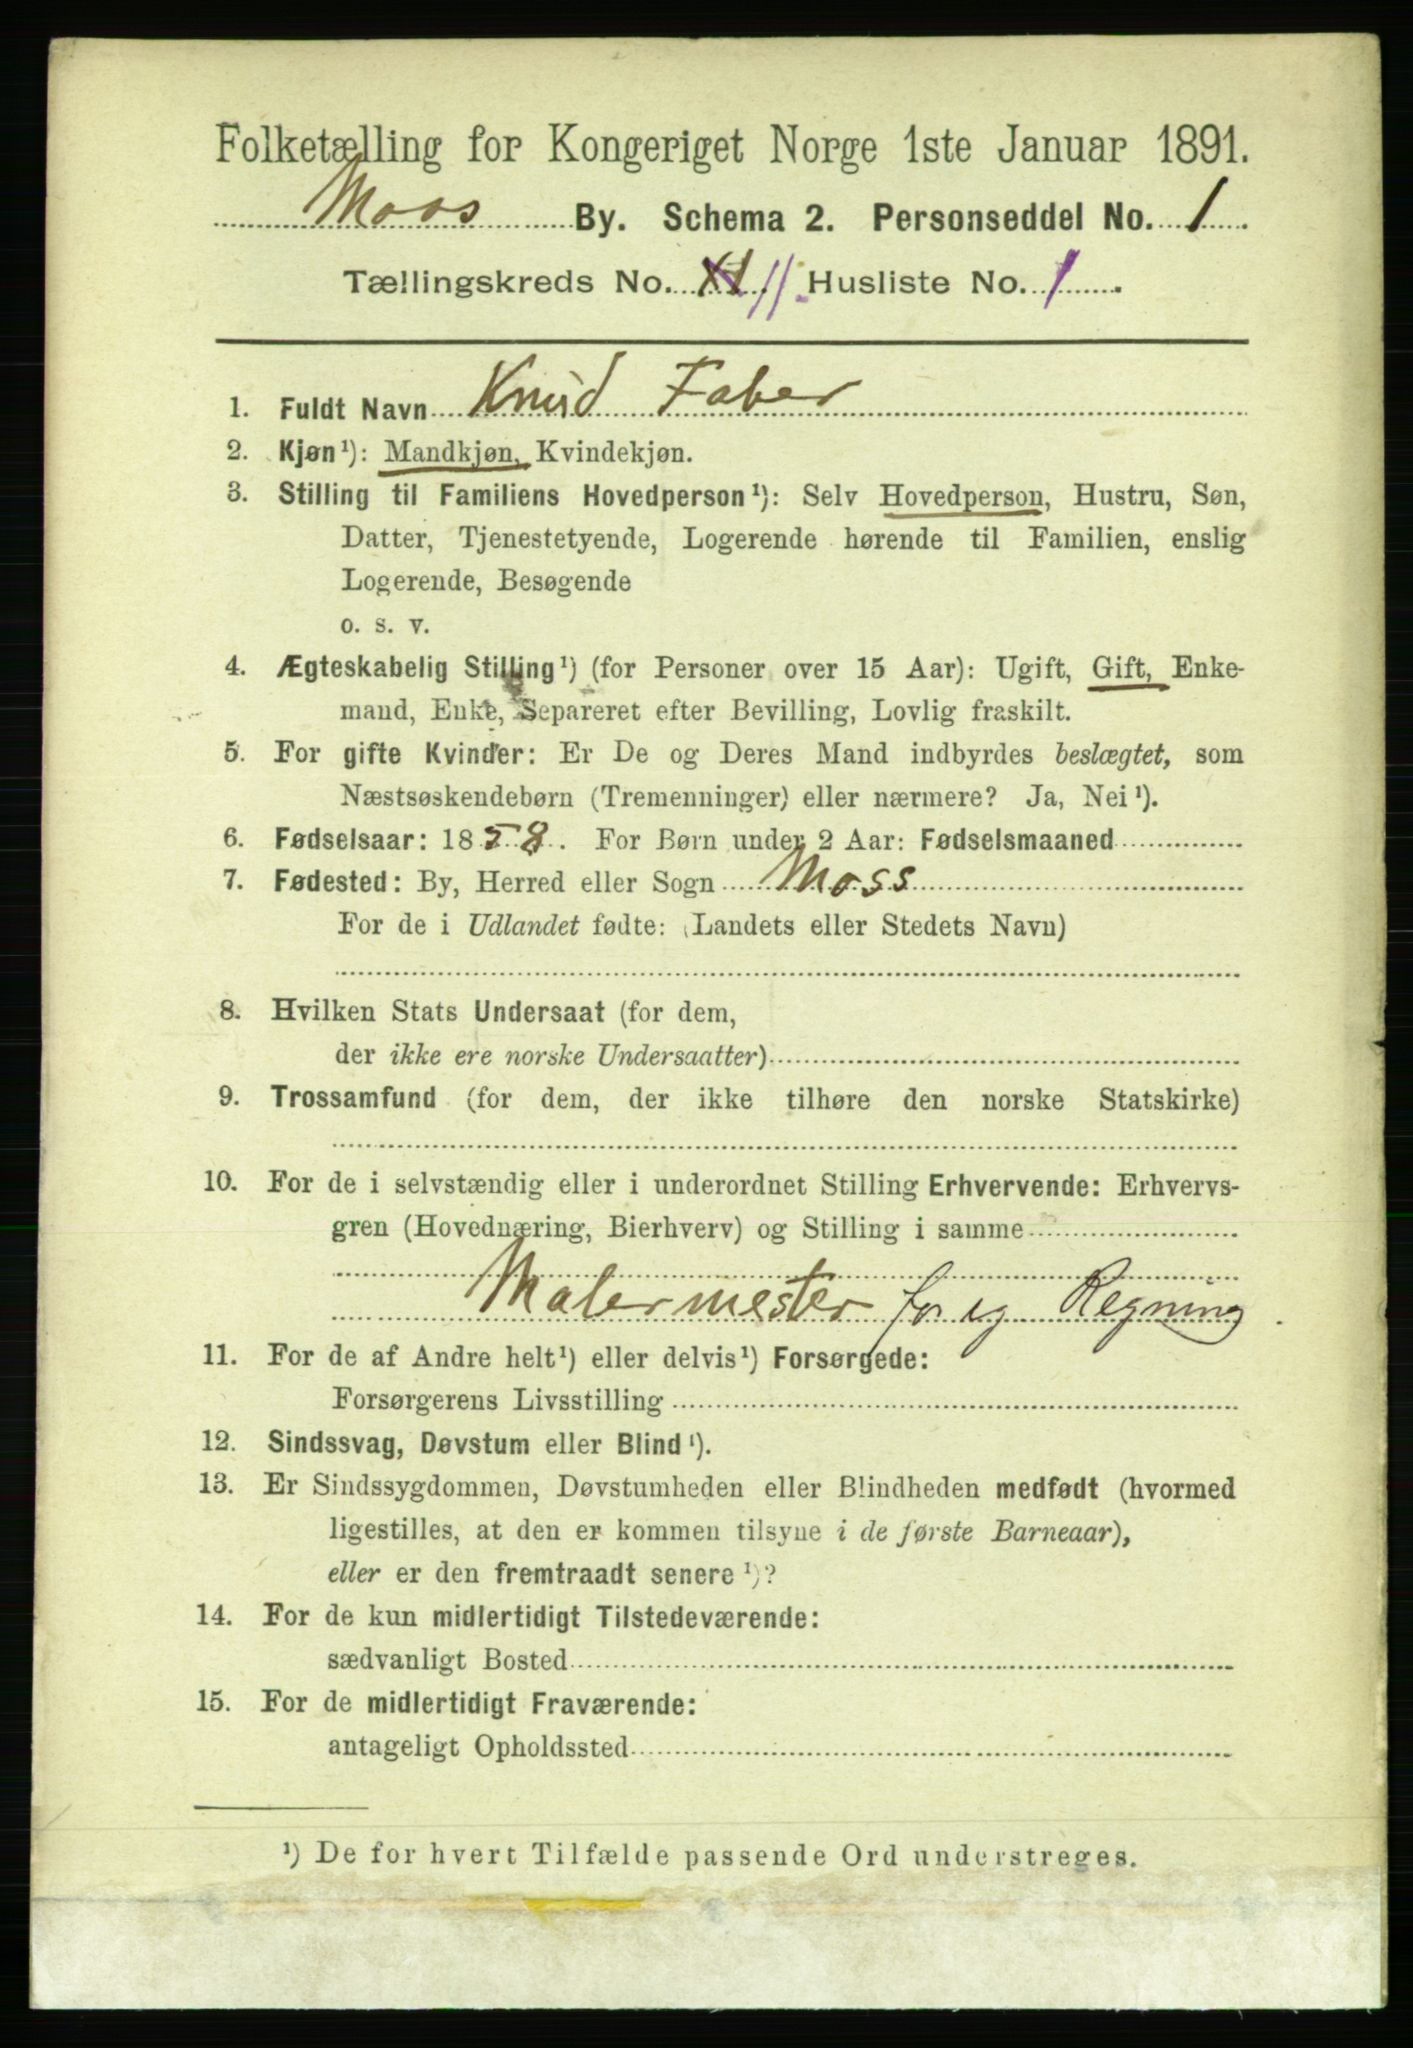 Folketælling for Kongeriget Norge 1ste Januar 1891.
Moos By. Schema 2. Personseddel No. 1.
Tællingskreds No. XI 11. Husliste No. 1.
1. Fuldt Navn Knud Faber
2. Kjøn¹): Mandkjøn, Kvindekjøn.
3. Stilling til Familiens Hovedperson¹): Selv Hovedperson, Hustru, Søn,
Datter, Tjenestetyende, Logerende hørende til Familien, enslig
Logerende, Besøgende
o. s. v.
4. Ægteskabelig Stilling¹) (for Personer over 15 Aar): Ugift, Gift, Enke-
mand, Enke, Separeret efter Bevilling, Lovlig fraskilt.
5. For gifte Kvinder: Er De og Deres Mand indbyrdes beslægtet, som
Næstsøskendebørn (Tremenninger) eller nærmere? Ja, Nei¹).
6. Fødselsaar: 1858. For Børn under 2 Aar: Fødselsmaaned
7. Fødested: By, Herred eller Sogn Moss
For de i Udlandet fødte: (Landets eller Stedets Navn)
8. Hvilken Stats Undersaat (for dem,
der ikke ere norske Undersaatter)
9. Trossamfund (for dem, der ikke tilhøre den norske Statskirke)
10. For de i selvstændig eller i underordnet Stilling Erhvervende: Erhvervs-
gren (Hovednæring, Bierhverv) og Stilling i samme
Malermester for eg Regning
11. For de af Andre helt¹) eller delvis¹) Forsørgede:
Forsørgerens Livsstilling
12. Sindssvag, Døvstum eller Blind¹).
13. Er Sindssygdommen, Døvstumheden eller Blindheden medfødt (hvormed
ligestilles, at den er kommen tilsyne i de første Barneaar),
eller er den fremtraadt senere¹)?
14. For de kun midlertidigt Tilstedeværende:
sædvanligt Bosted
15. For de midlertidigt Fraværende:
antageligt Opholdssted
¹) De for hvert Tilfælde passende Ord understreges.